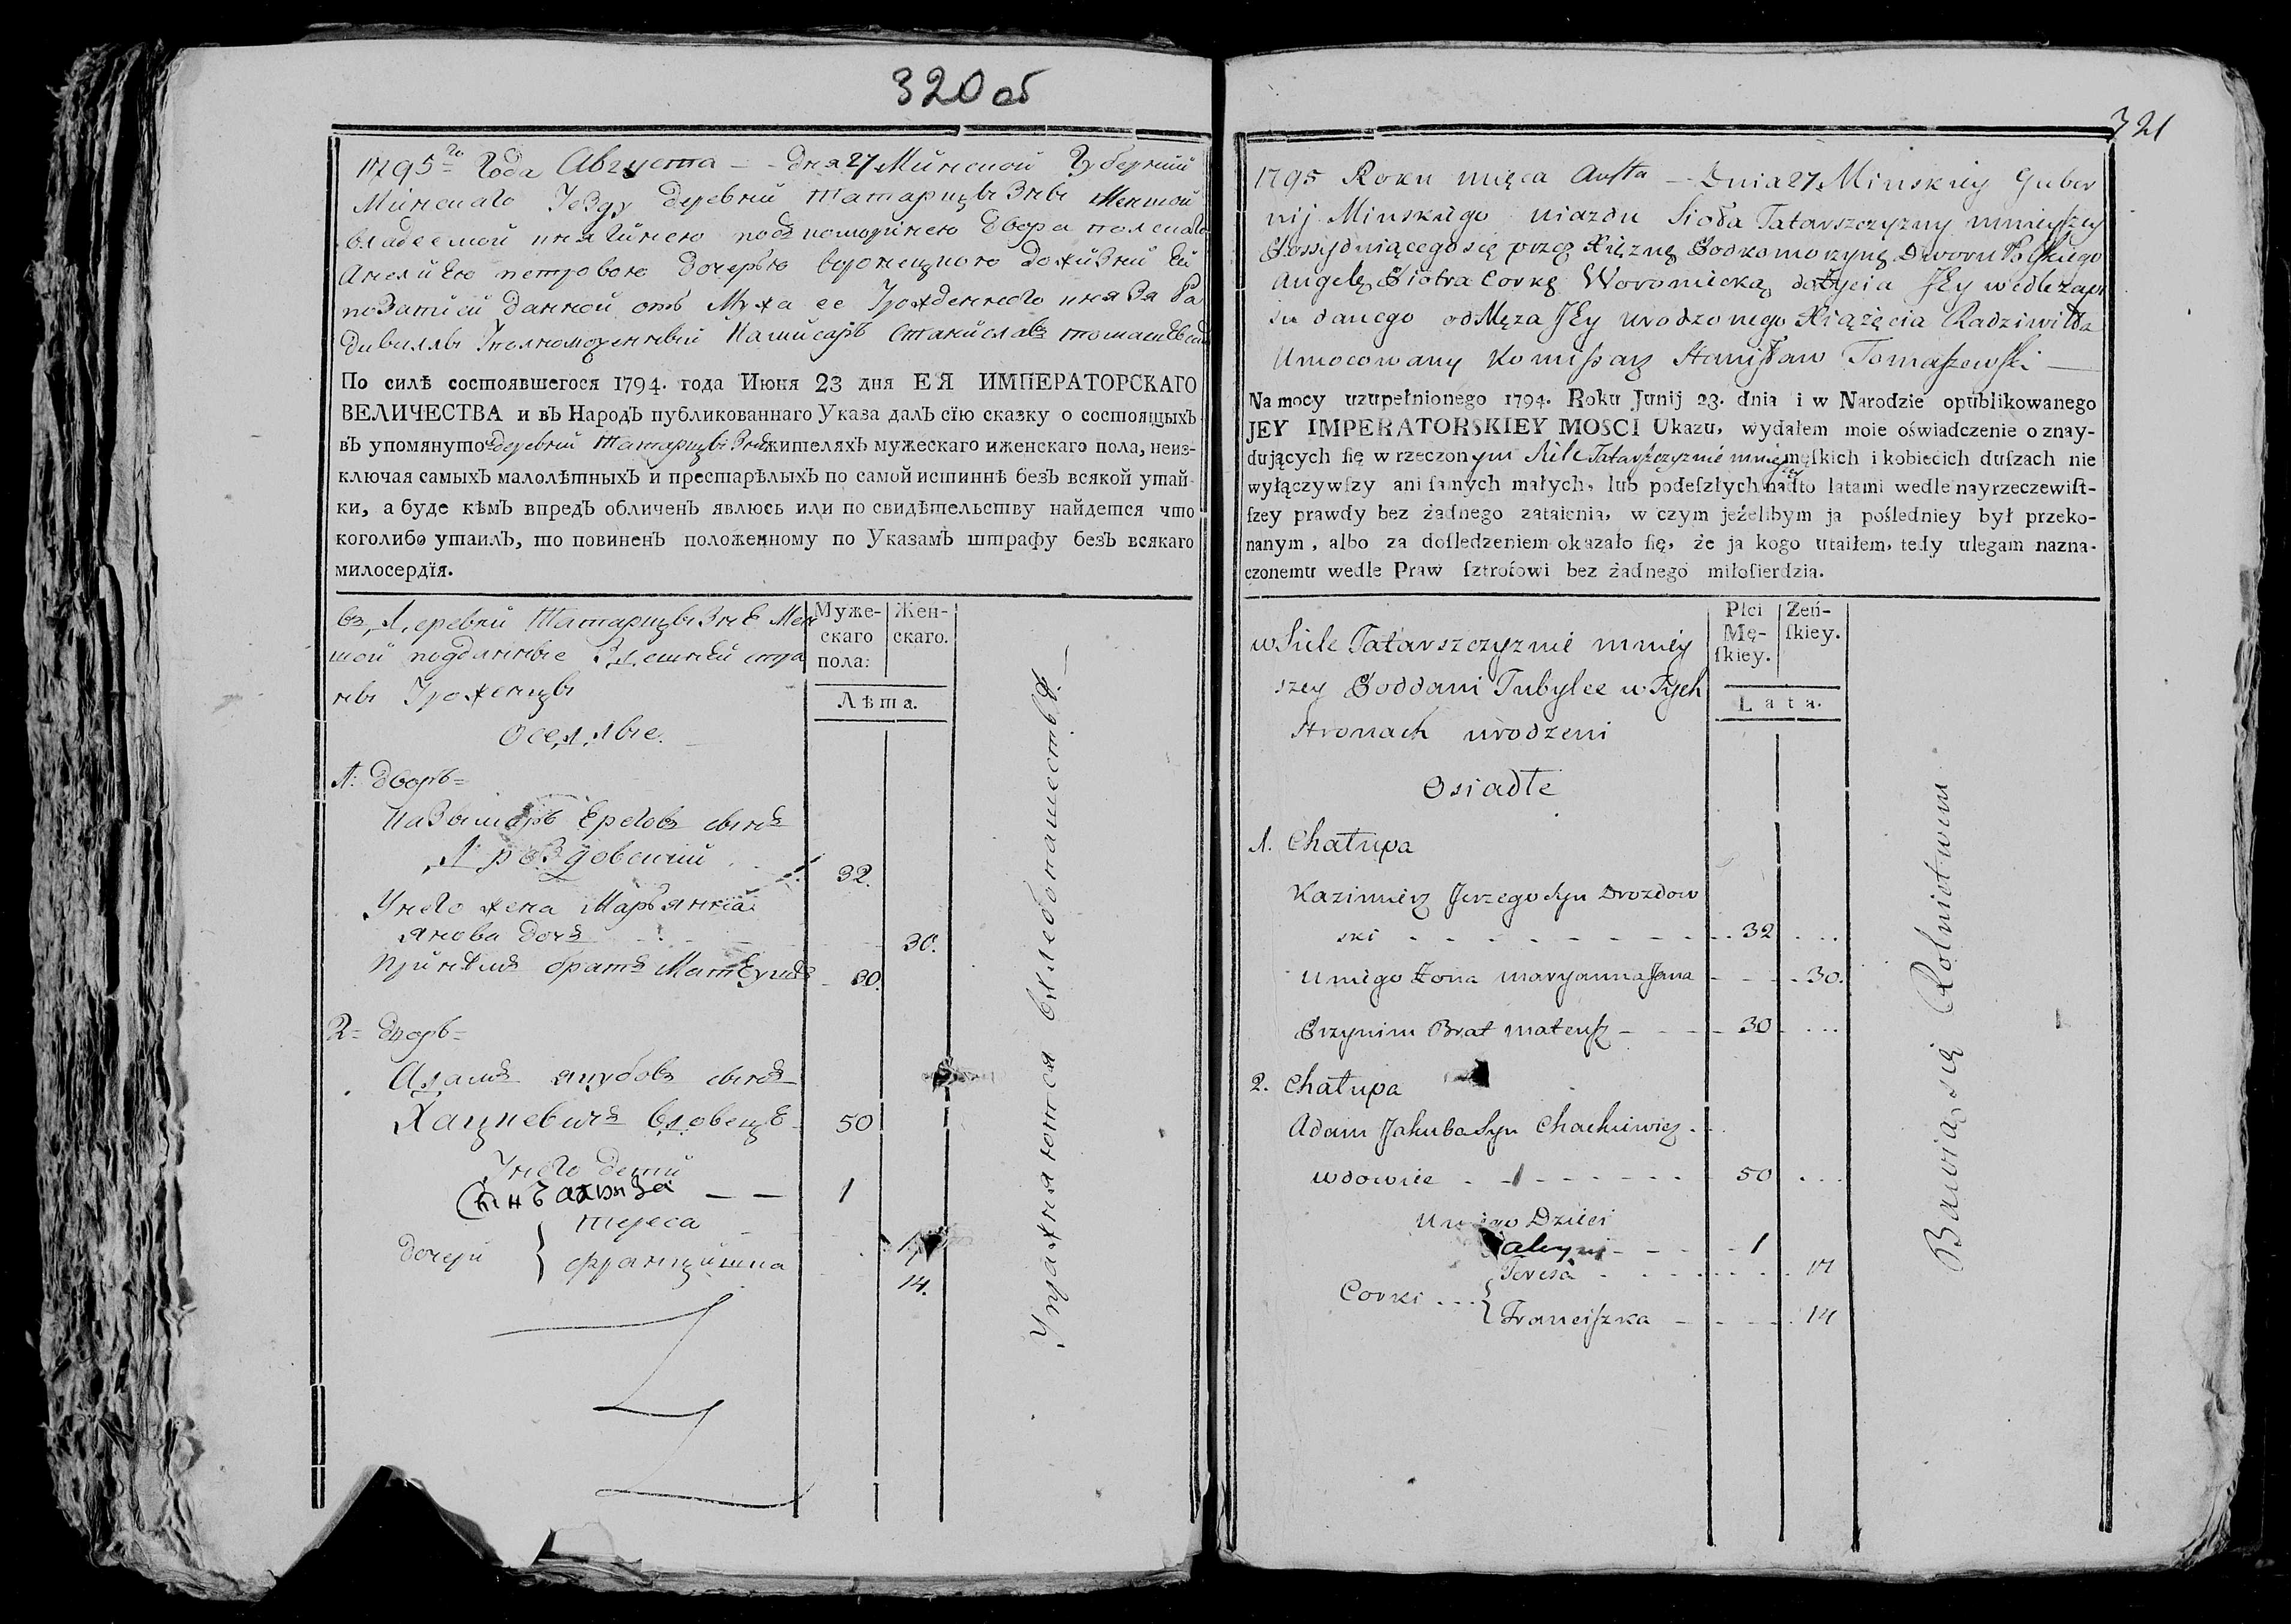 320 об
1795го Года Августа — дня 27 Минской Губернии
Минскаго Уезду деревни Татарщызны Меншой
владеемой княгинею подкоморинею Двора полскаго
Анелиею петровою дочерью воронецкою
данной отъ Мужа ее Урожденнаго князя Ра
дивилла Станиславъ
По силѣ состоявшегося 1794. года Июня 23 дня ЕЯ ИМПЕРАТОРСКАГО
ВЕЛИЧЕСТВА и въ Народъ публикованнаго Указа далъ сїю сказку о состоящыхъ
въ упомянуто деревни Татарщызне жителяхъ мужескаго иженскаго пола, неиз-
ключая самыхъ малолѣтныхъ и престарѣлыхъ по самой истиннѣ безъ всякой утай-
ки, а буде кѣмъ впредъ обличенъ явлюсь или по свидѣтельству найдется что
коголибо утаилъ, то повиненъ положенному по Указамъ штрафу безъ всякаго
милосердїя.
въ Деревни Татарщызне Мен
шой подданные Здешней сто
ны Уроженцы
Оседлые
Муже-
скаго
пола:
Жен-
скаго.
Лѣта.
1: дворъ =
Казымеръ Ереговъ сынъ
Дроздовский 32.
Унего жена Марьянна
янова дочъ 30.
При немъ братъ Матеушъ 30.
2 = дворъ =
Адамъ якубовъ сынъ
Хацкевичъ вдовецъ 50
Унего дети
1
дочери { тереса
францишка 14.
Упражняются хлебопашествомъ
321
1795 Roku mięca Austa — Dnia 27 Minskiey Guber
nij Minskiego uiazdu Sioła Tatarszczyzny mnieyszey
Possyduiącego się przez Xiężnę Podkomorzynę Dworu Polskiego
Angelę Piotra Corkę Woronieckę dożycia Jey wedle zapi
su danego od Męza Jey urodzonego Xiążęcia Radziwiłła
Umocowany Komissarz Stanisław Tomaszewski —
Na mocy uzupełnionego 1794. Roku Junij 23. dnia i w Narodzie opublikowanego
JEY IMPERATORSKIEY MOSCI Ukazu, wydałem moie oświadczenie o znay-
dujących się w rzeczonym Siele Tatarszczyznie mniey męskich i kobiecich duszach nie
szey
wyłączywszy ani samych małych, lub podeszłych nadto latami wedle nayrzeczewist-
szey prawdy bez żadnego zataienia, w czym jeżelibym ja pośledniey był przeko-
nanym, albo za dośledzeniem okazało się, że ja kogo utaiłem, tedy ulegam nazna-
czonemu wedle Praw sztrofowi bez żadnego miłosierdzia.
w Siele Tatarszczyznie mniey
szey Poddani Tubylce w Tych
stronach urodzeni
Osiadłe
Płci
Mę-
skiey.
Zeń-
skiey.
Lata.
1. Chałupa
Kazimierz Jerzego syn Drozdow
ski 32
U niego Żona maryanna Jana 30.
Przynim Brat mateusz 30
2. Chałupa
Adam Jakuba Syn Chackiewicz
wdowiec 50
U niego Dzieci
1
Corki { Teresa
Franciszka 14
Bawią się Rolnictwem